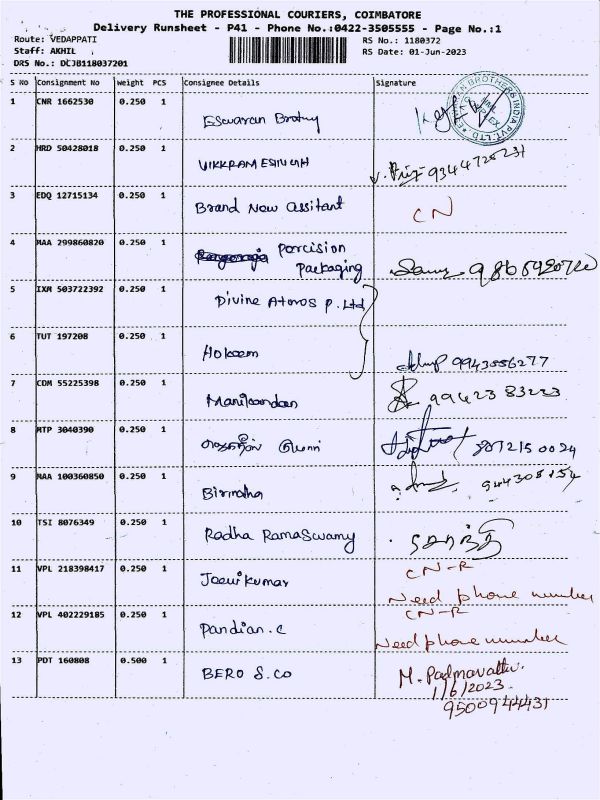 THE PROFESSIONAL COURIERS, COIMBATORE
Delivery Runsheet - P41 - Phone No.:0422-3505555 - Page No.:1
Route: VEDAPPATI RS No.: 1180372
Staff: AKHIL RS Date: 01-Jun-2023
DRS No.: DCJB118037201
S No Consignment No Weight PCS Consignee Details Signature
1 CNR 1662530 0.250 1 Eswaran Brothy
2 HRD 50428018 0.250 1 VIKKRAM ESINGH
3 EDQ 12715134 0.250 1 Brand New assitant CN
4 MAA 299860820 0.250 1 Porcision
Packaging
5 IXM 503722392 0.250 1 Divine Atmos P. Ltd
6 TUT 197208 0.250 1 Hokoom 9943556277
7 CDM 55225398 0.250 1 Manikandan 99423 83223
8 RTP 3040390 0.250 1
9 MAA 100360850 0.250 1 Birmaha
10 TSI 8076349 0.250 1 Radha RamaSwamy
11 VPL 218398417 0.250 1 Jeevikumar CN-R
Need phone number
12 VPL 402229185 0.250 1 Pandian.c CN-R
Need phone number
13 PDT 160808 0.500 1 BERO S.CO M. Padmavathi
1/6/2023
9500944431